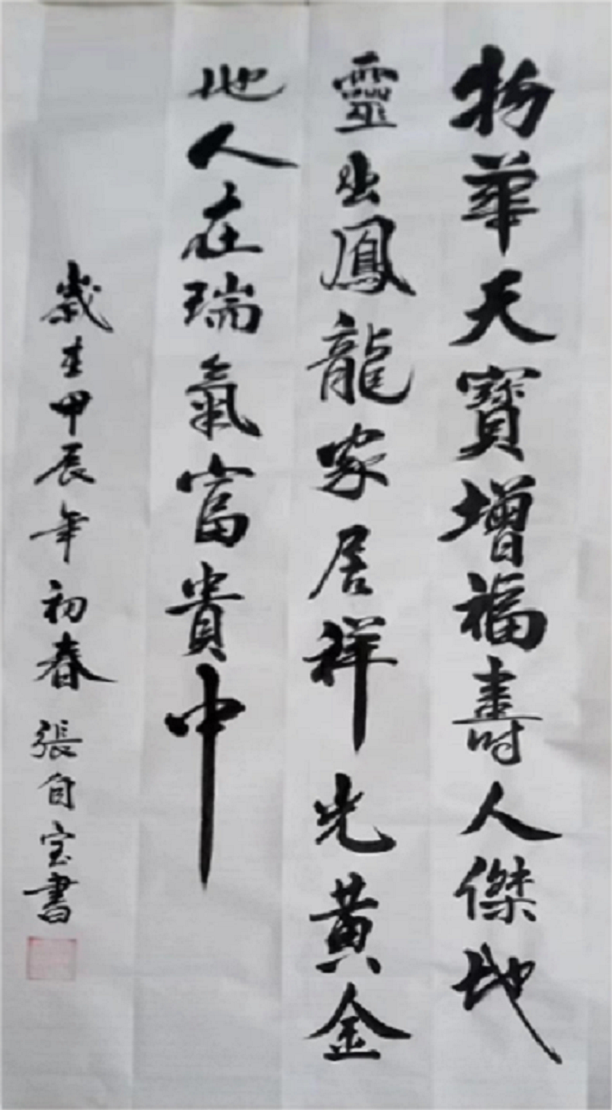 物華天寶增福壽人傑地
靈出鳳龍家居祥光黃金
地人在瑞氣富貴中
歲在甲辰年初春張自宝書